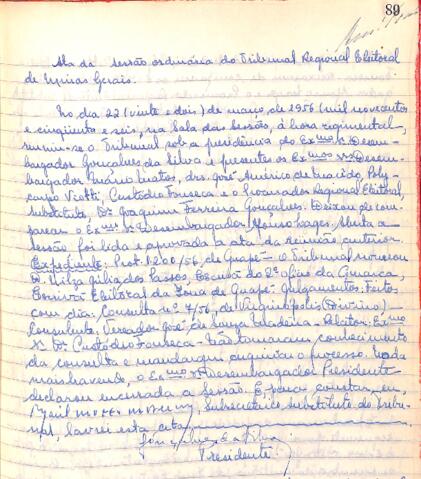 89
Ata da sessão ordinária do Tribunal Regional Eleitoral
de Minas Gerais.
No dia 22 (vinte e dois) de março, de 1956 (mil novecentos
e cinqüenta e seis, na Sala das Sessão, à hora regimental,
reuniu-se o Tribunal sob a presidência do Exmo Sr. Desem-
bargador Gonçalves da Silva e presentes os Exmos Srs. Desem-
bargador Mário Matos, drs. José Américo de Macêdo, Poly-
carpo Viotti, Custódio Fonseca e o Procurador Regional Eleitoral,
substituto, Dr. Joaquim Ferreira Gonçalves. Deixou de com-
parecer o Exmo Sr. Desembargador Afonso Lages. Aberta a
sessão foi lida e aprovada a ata da reunião anterior.
Expediente: Prot. 1200/56, de Guapé - O Tribunal nomeou
D. Júlia dos Passos, Escrivã do 2º ofício da Comarca,
Escrivã Eleitoral da Zona de Guapé. Julgamentos: Feitos
com dia: Consulta nº 4/56, de Virginópolis (Divino) -
Consulente: Vereador José de Souza - Relator: Exmo
Sr. Dr. Custódio Fonseca - Não tomaram conhecimento
da consulta e mandaram arquivar o processo. Nada
mais havendo, o Exmo Sr. Desembargador Presidente
declarou encerrada a Sessão. E, para constar, eu,
Subsecretário substituto do Tribu-
nal, lavrei esta ata
Presidente